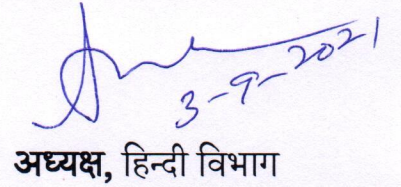 3-9-2021
अध्यक्ष, हिन्दी विभाग